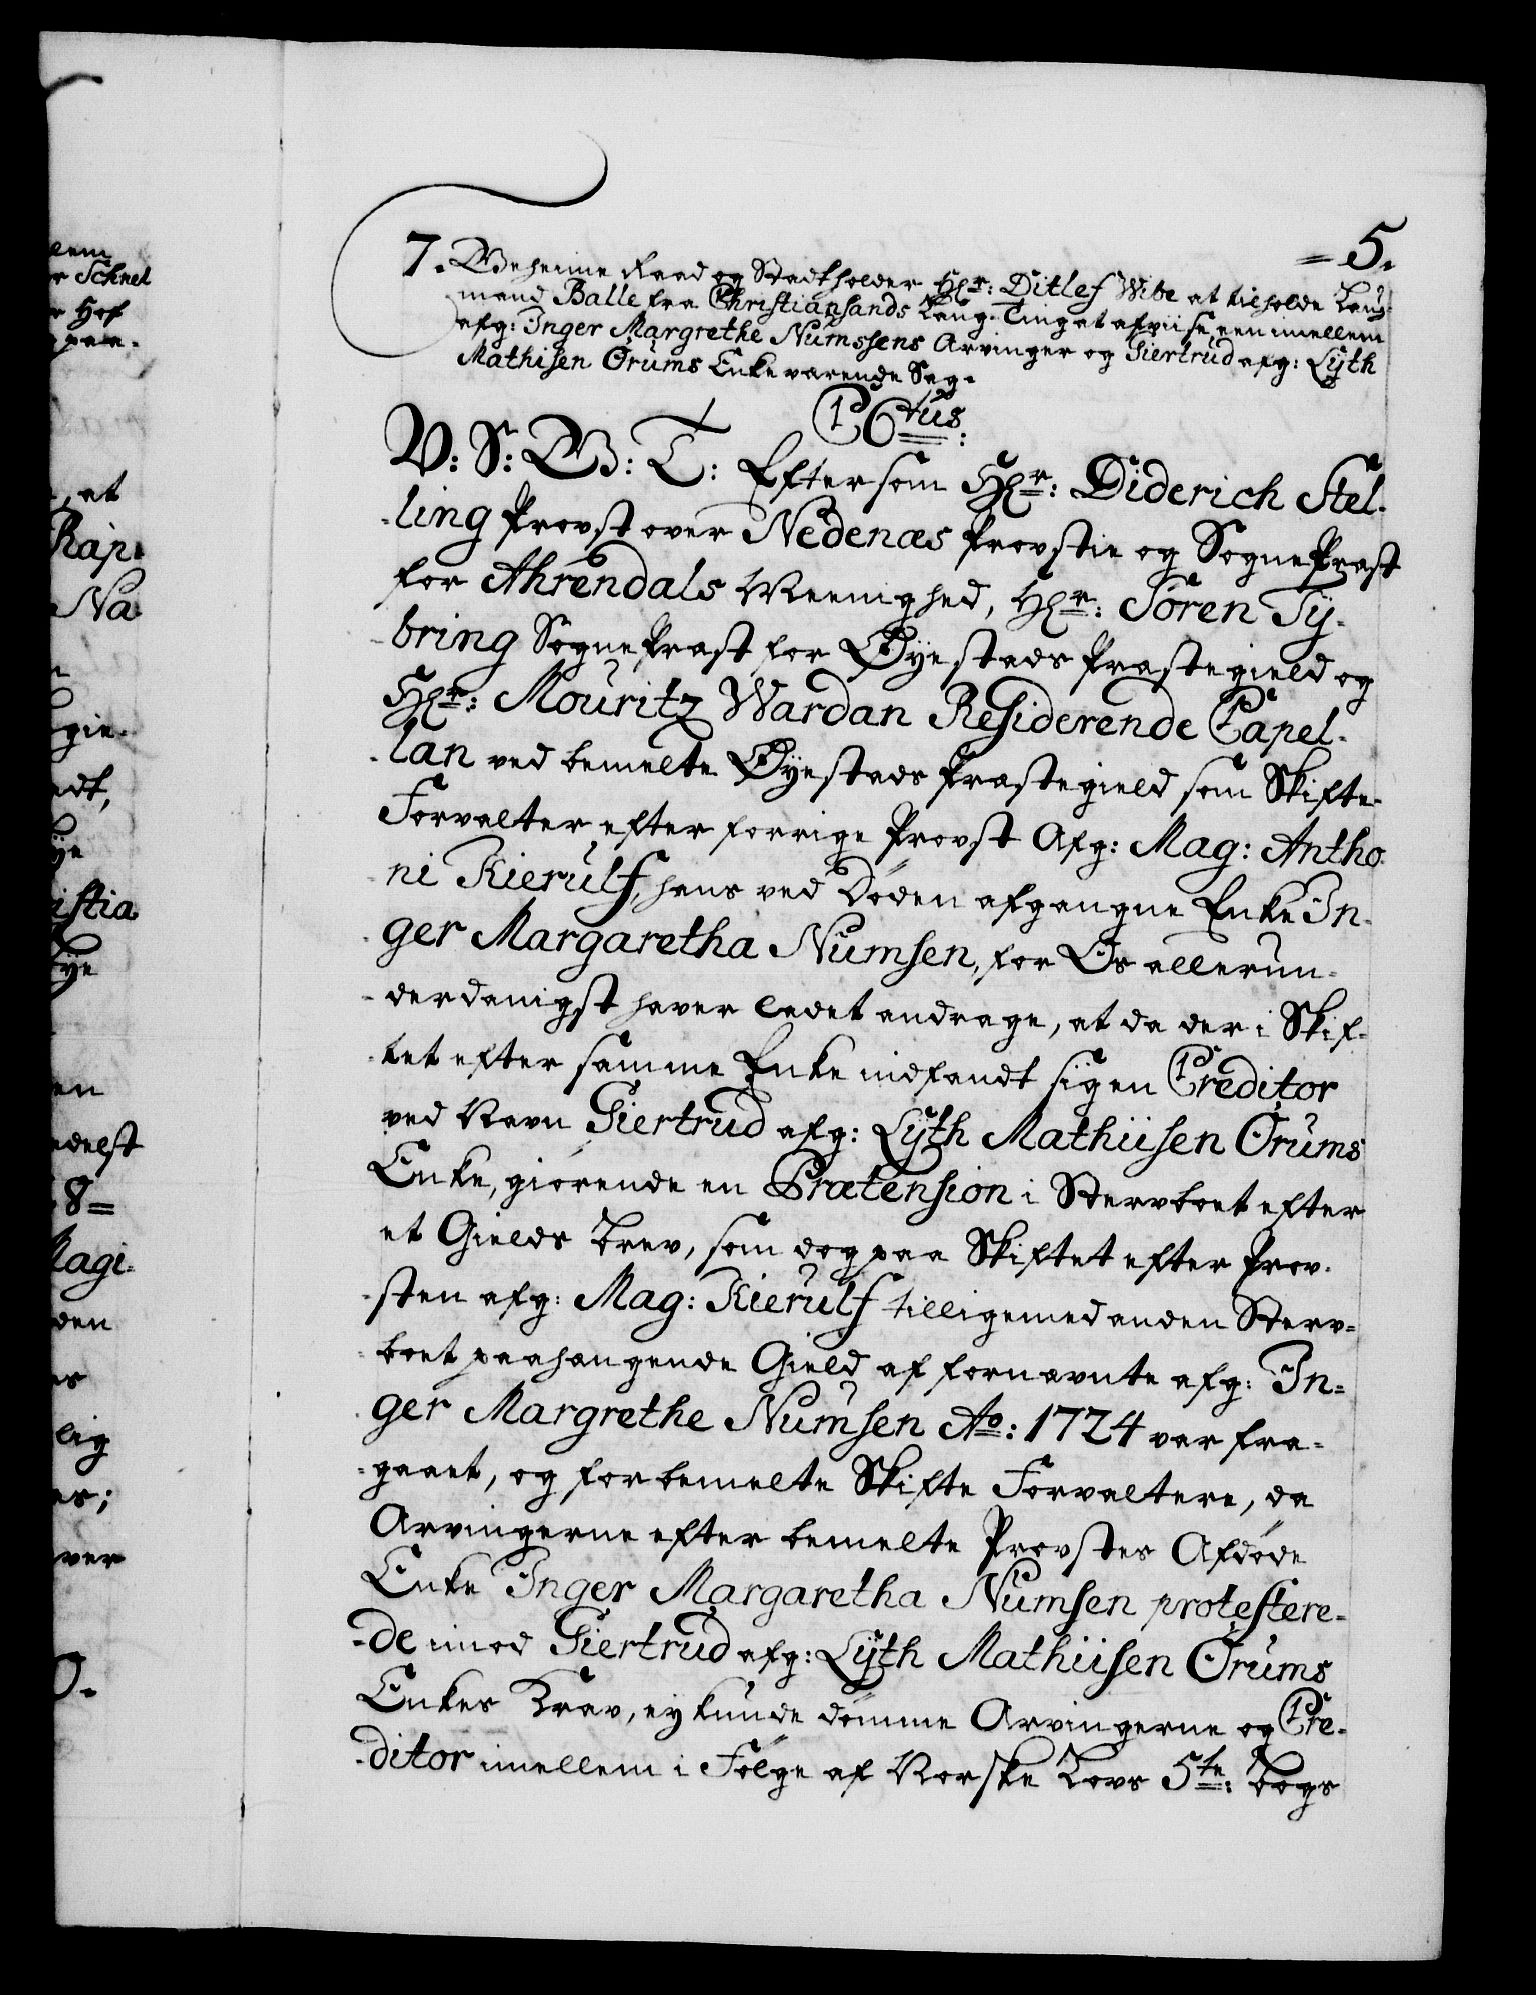 =5.
7. Geheime Raad og Stadtholder Hr: Ditlef Wibe at tilholde Laug-
mand Balle fra Christiansands Laug-Ting at afviise een imellem
afg: Inger Margrethe Numssens Arvinger og Giertrud afg: Lyth
Mathisen Örums Enke varende Sag.
C6tus:
V: S: G: T: Eftersom Hr: Diderich Stel-
-ling Provst over Nedenæs Provstie og SognePræst
for Ahrendals Meenighed, Hr: Sören Ty-
-bring SognePræst for Øyestads Præstegield og
Hr: Mouritz Wardan Residerende Capel-
-lan ved bemelte Øyestads Præstegield som Skifte-
Forvalter efter forrige Provst Afg: Mag: Antho-
ni Kierulf, hans ved Döden afgangne Enke In-
-ger Margaretha Numsen, for Os allerun-
-derdanigst haver ladet andrage, at da der i Skif-
-tet efter samme Enke indfandt sig en Creditor
ved Navn Giertrud afg: Lyth Mathiisen Örums
Enke, giörende en Prætension i Stervboet efter
et Gields Brev, som dog paa Skiftet efter Prov-
-sten afg: Mag: Kierulf tilligemed anden Sterv=
-boet paahængende Gield af fornævnte afg: In=
-ger Margrethe Numsen Ao: 1724 var fra-
-gaaet, og forbemelte Skifte Forvaltere, da
Arvingerne efter bemelte Provstes Afdöde
Enke Inger Margaretha Numsen protestere-
-de imod Giertrud afg: Lyth Mathiisen Örums
Enkes Krav, ey kunde dömme Arvingerne og Cre-
-ditor imellem i Fölge af Norske Lovs 5te: Bogs
lem
r Schnel
r Hof
paa-
, at
Kap:
Na
gie-
edt,
ye
istia
ye
en
edelst
8=
Magi-
den
es
lig
es;
ver